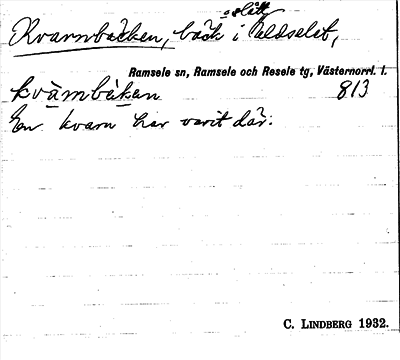 Kvarnbäcken, bäck i Eldselet,
slått
Ramsele sn, Ramsele och Resele tg, Västernorrl. l.
kvä̱rnbèkan 813
En kvarn har varit där.
C. LINDBERG 1932.